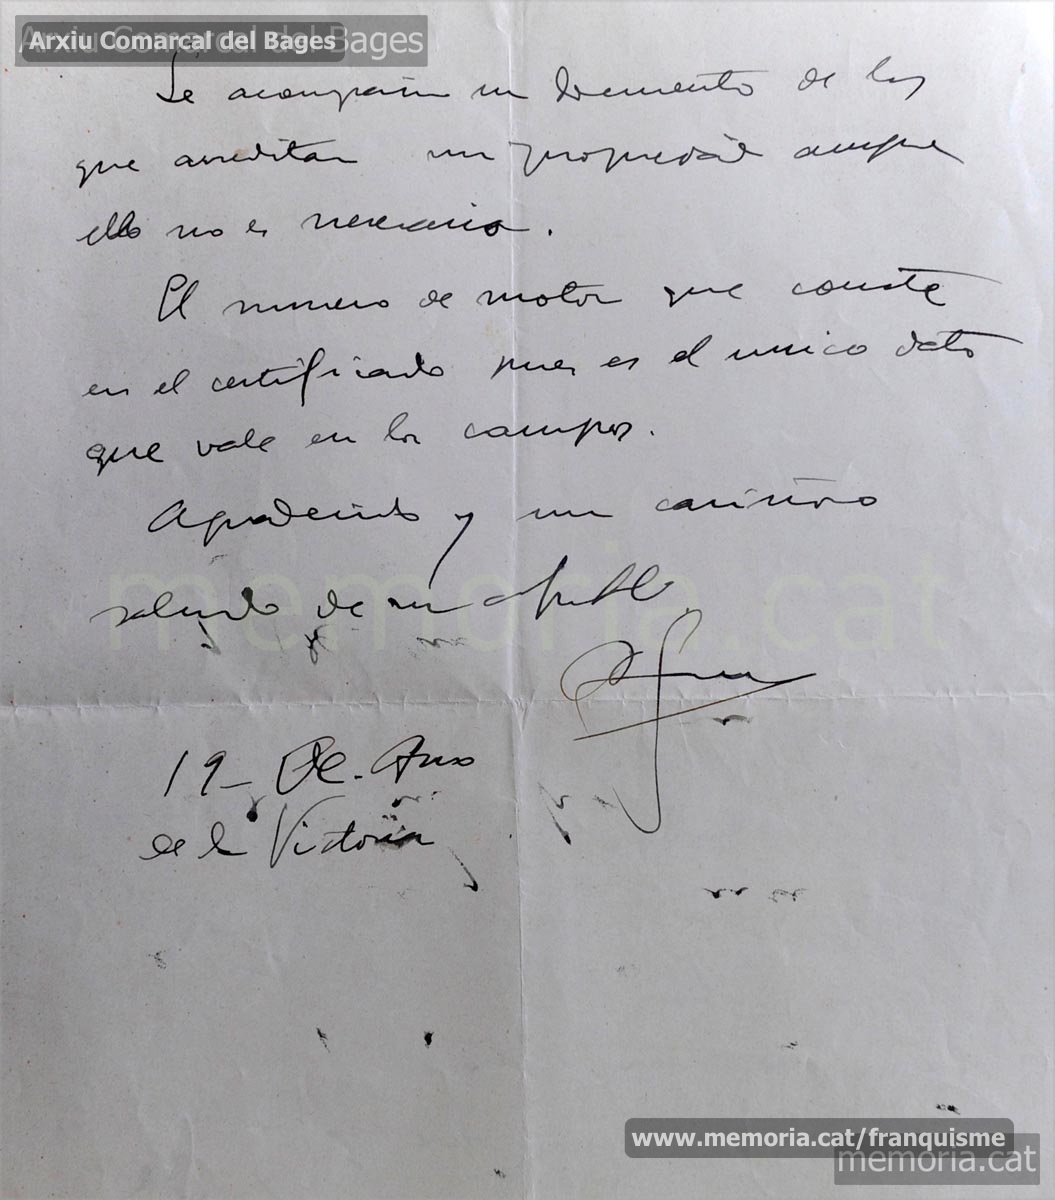 Arxiu Comarcal del Bages
Se acompaña un documento de los
que acreditan mi propiedad aunque
ello no es necesario.
El numero de motor que conste
en el certificado pues es el unico dato
que vale en los campos.
Agradecido y un cariñoso
saludo de un
19 - De. Año
de la Victoria
memoria.cat
www.memoria.cat/franquisme
memoria.cat